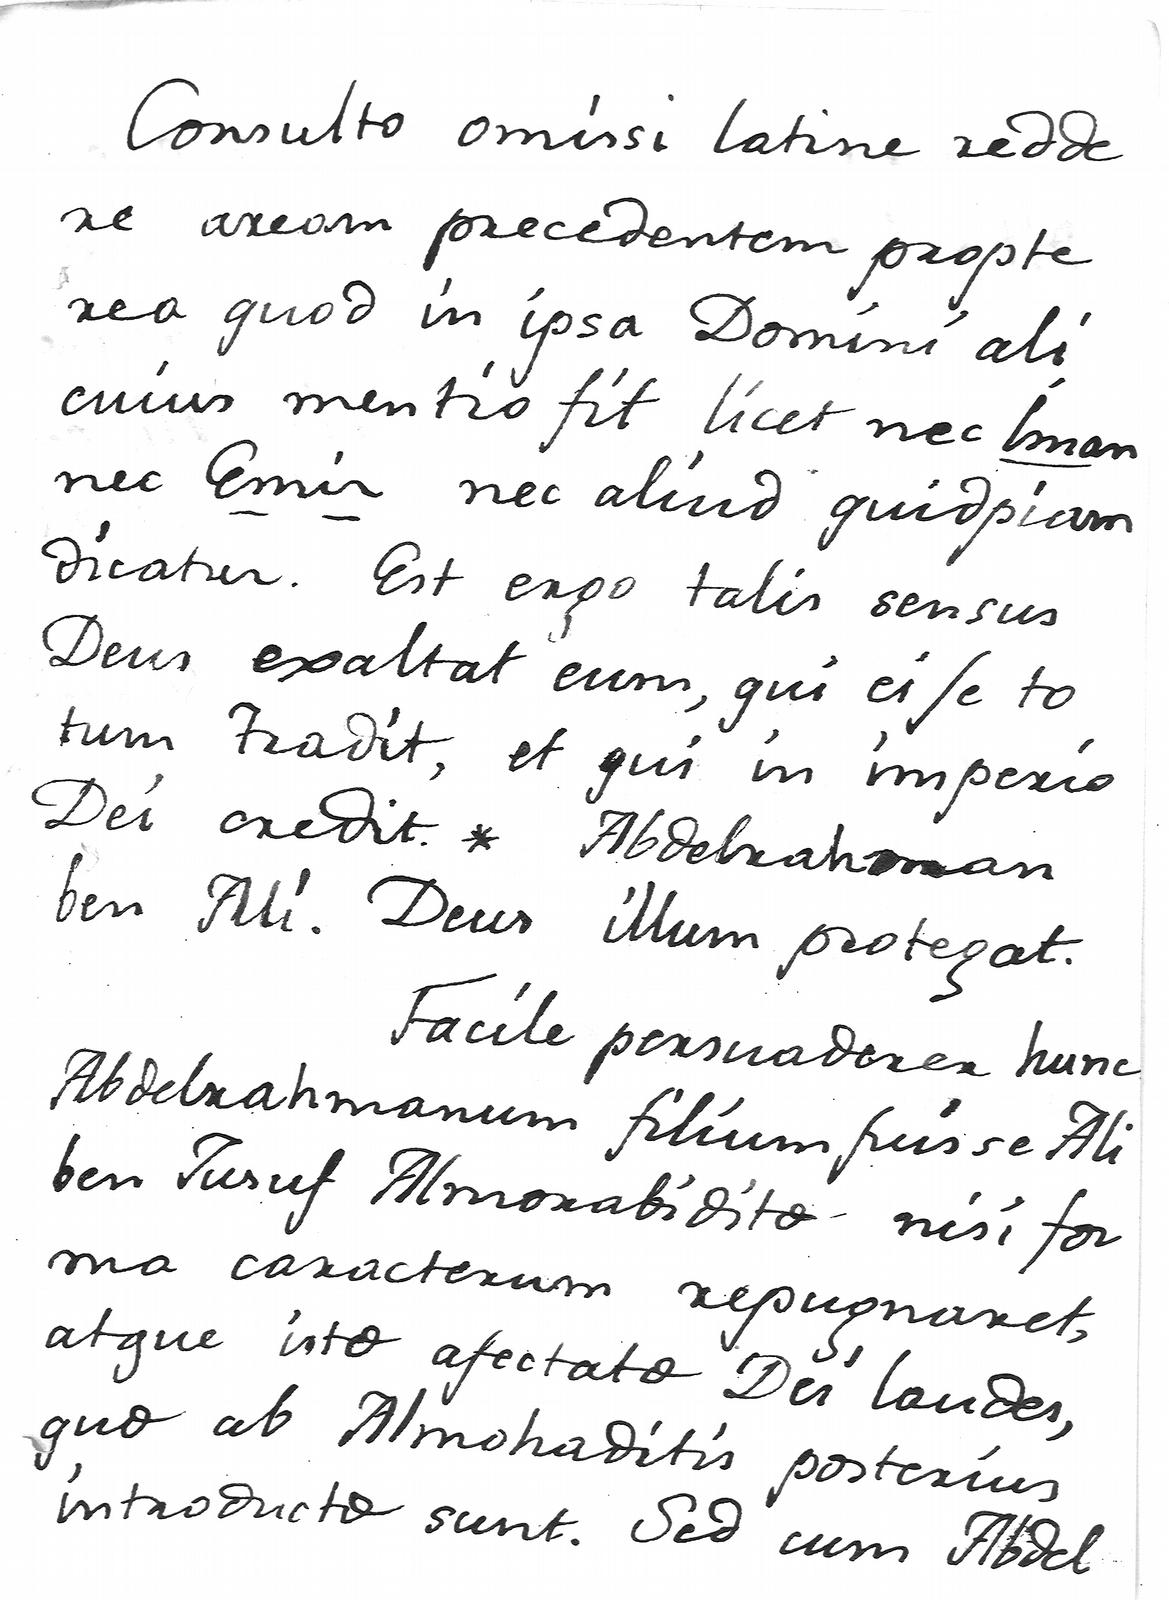 Consulto omissi latine redde
re aream precedentem propte
rea quod in ipsa Domini ali
cuius mentio fit licet nec Iman
nec Emir nec aliud quidpiam
dicatur. Est ergo talis sensus
Deus exaltat eum, qui ei se to
tum tradit, et qui in imperio
Dei credit. * Abdelrahman
ben Ali. Deus illum protegat.
Facile persuaderer hunc
Abdelrahmanum filium fuisse Ali
ben Jusuf Almorabiditæ nisi for
ma caracterum repugnaret,
atque istæ afectatæ Dei laudes,
quæ ab Almohaditis posterius
introductæ sunt. Sed cum Abdel